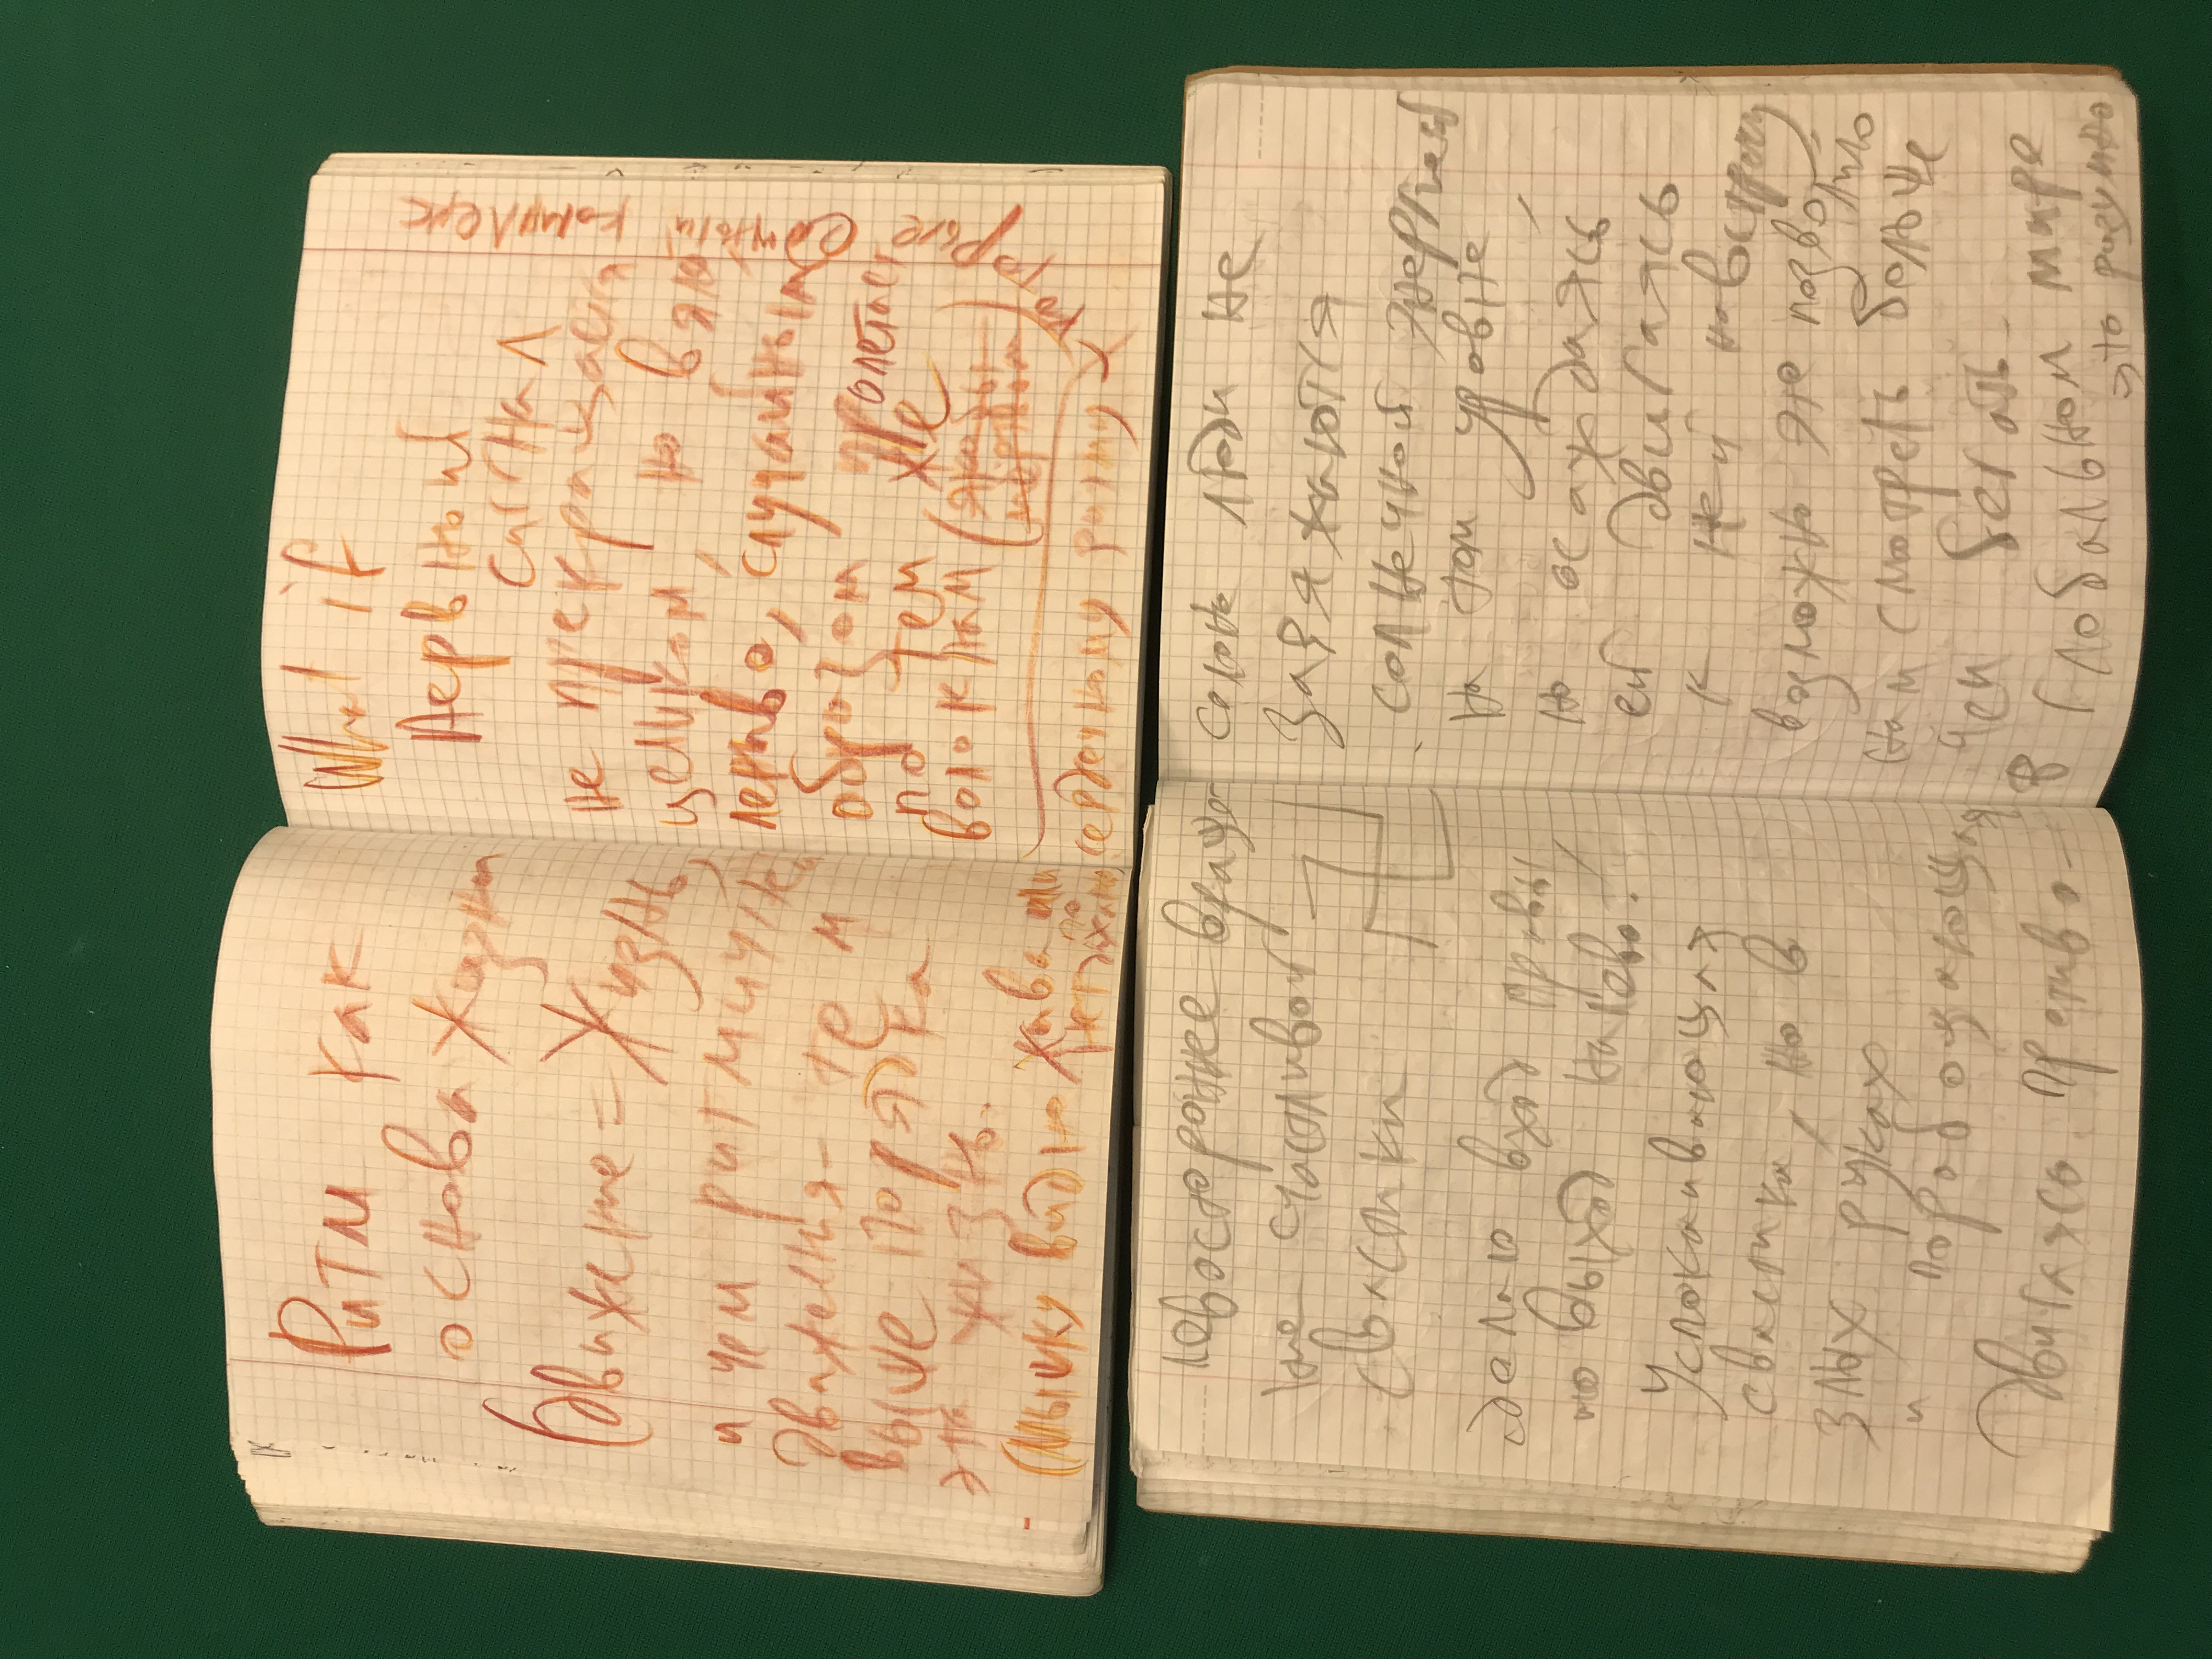 Ритм как
основа жизни
(движение = Жизнь,
и чем ритмичнее
движения - тем
выше порядка
эта жизнь.
(Мышку видно жива или
нет по
дыханию,
What if
Нервный
сигнал
не прекращается
целиком, но вяло
лениво, случайным
образом пролетает
по тем же
волокнам (якобы
мёртвом)
сердечному ритму
которые единый комплекс
левостороннее враще-
ние счастливой
свастики
делаю вход правы,
но выход налево!
Успокаивающая
свастика, но в
злых руках
и порабощающая
Двигаясь противо-
солоно люди не
заряжаются
солнечной энергией
на том уровне,
но осаждаясь
ей двигаясь
к ней навстречу
возможно это позволило
нам смотреть больше
чем бегать.
В глобальном мире
это разумно